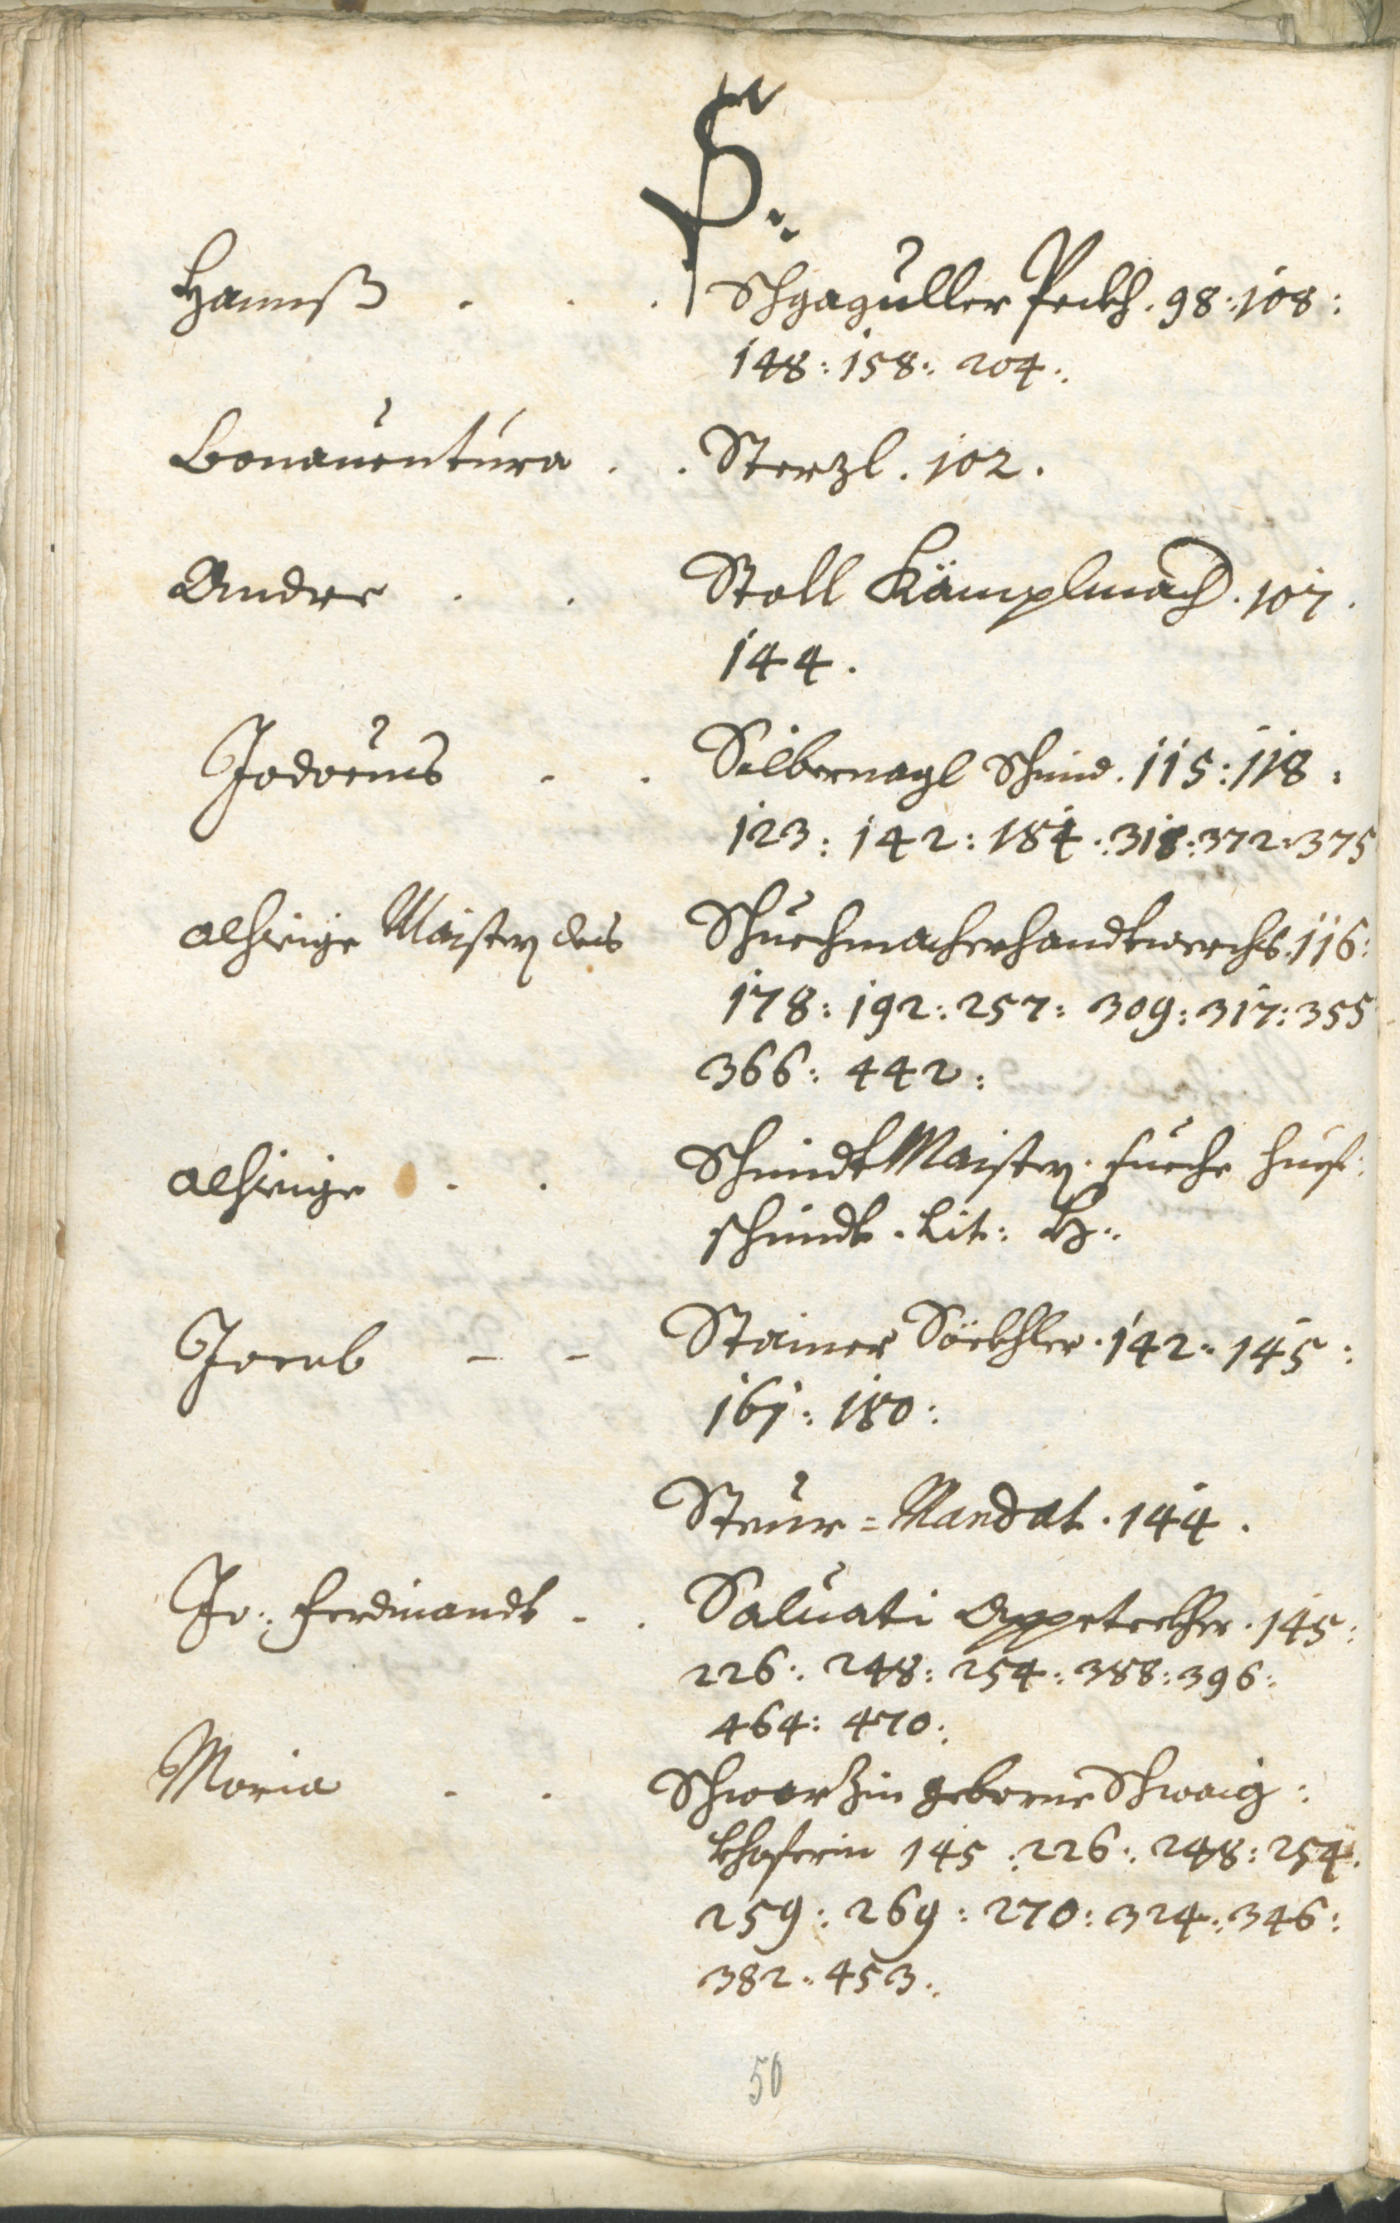 S.
Hannß . . . Schgaguller Peckh. 98: 108:
148: 158: 204:
Bonauentura . . Sterzl. 102.
Andre . . Stoll Kämplmach. 107.
144.
Jodocus . . Silbernagl Schmid. 115: 118:
123: 142: 184: 318: 372: 375
alhieige Maister des Schuechmacherhandtwerchs. 116:
178: 192: 257: 309: 317: 355
366: 442:
alhieige . . Schmidt Maister. sueche huef:
schmidt. Lit: H:
Jacob - - Stainer Säckhler. 142: 145:
161: 180:
Steur=Mandat. 144.
Jo: Ferdinandt - . Saluati Appeteckher. 145:
226: 248: 254: 388: 396:
464: 470:
Maria - . Schwarzin geborne Schwaig:
khoferin 145: 226: 248: 254:
259: 269: 270: 324: 346:
382: 453:
50